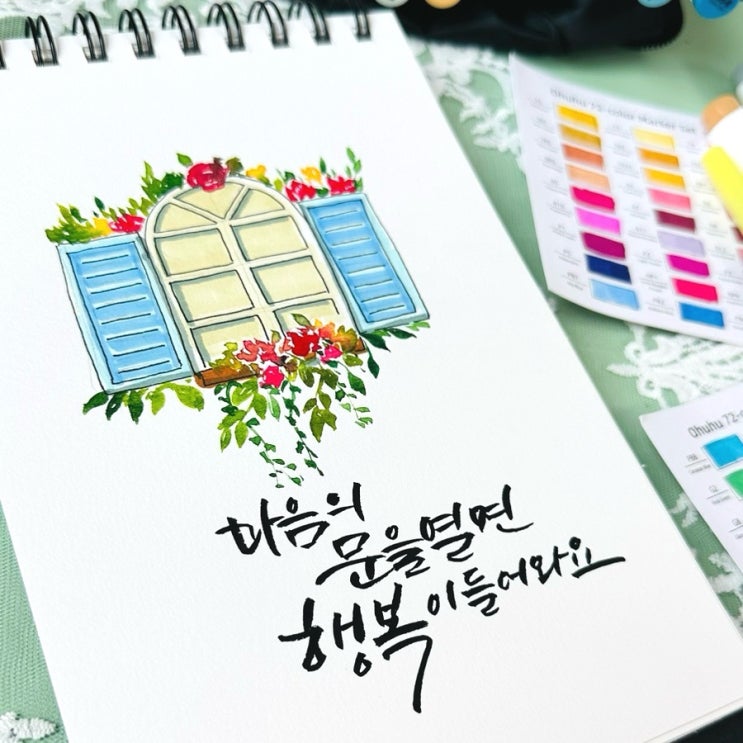 마음의
문을열면
행복이들어와요
Ohuhu 72-color Marker Set
Ohuhu 72-